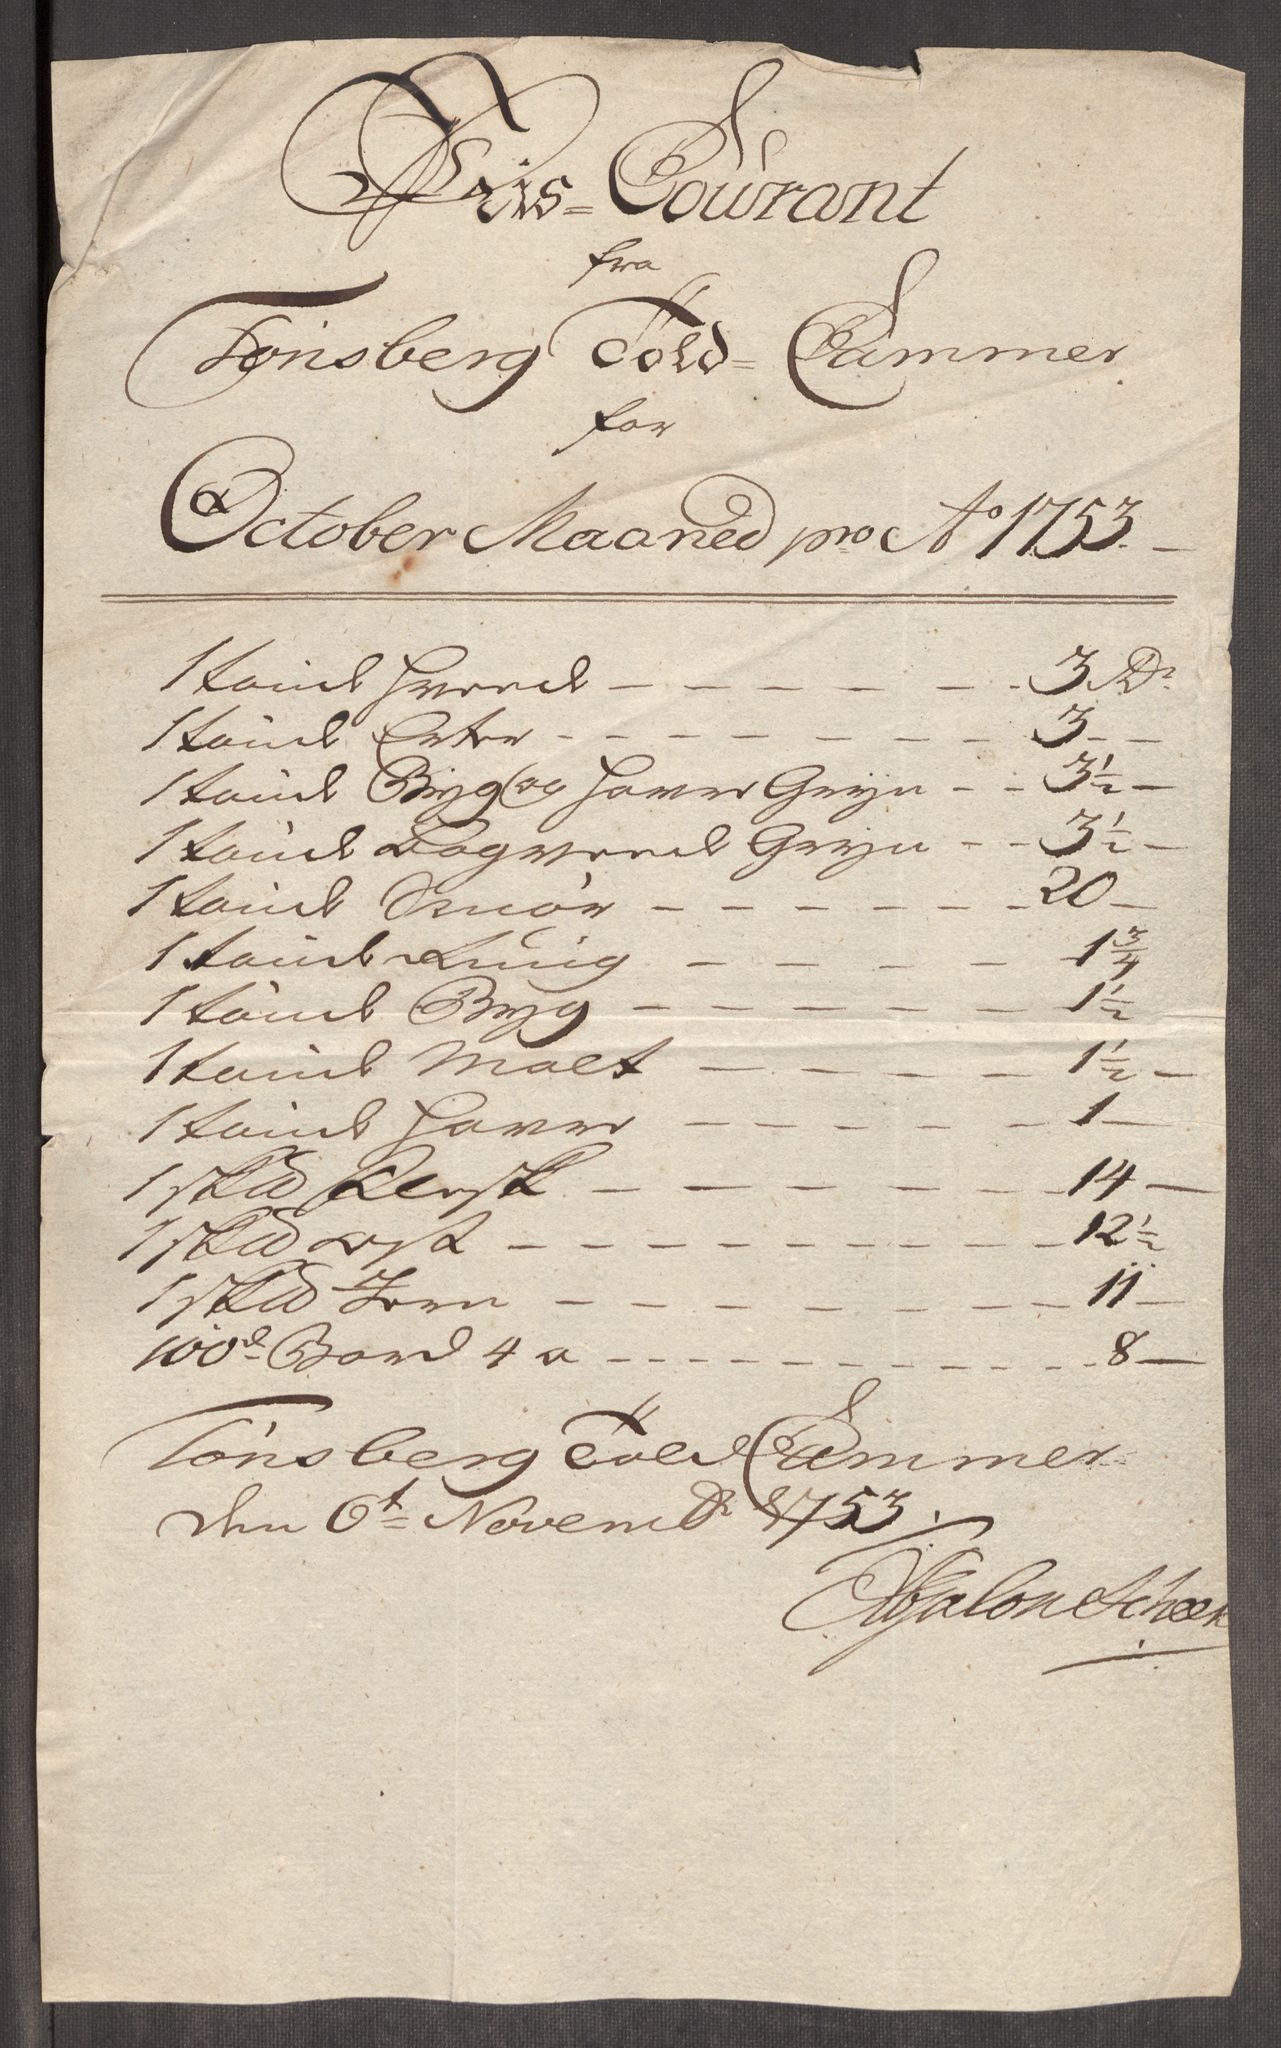 Pris=Courant
fra
Tønsberg Told=Cammer
for
October Maaned pro Ao 1753.
1 tønde Hveede 3 Rdr
1 tønde Erter 3
1 tønde Byg og Haver Gryn 3½
1 tønde Bogveede Gryn 3½
1 tønde Smør 20
1 tønde Rug 1¾
1 tønde Byg 1½
1 tønde Malt 1½
1 tønde Haver 1
1 sk℔ Flesk 14
1 sk℔ ost 12½
1 sk℔ Jern 11
100de Bord 4 a 8
Tønsberg Told Cammer
den 6t= Novembr 1753.
Absalon Scheen